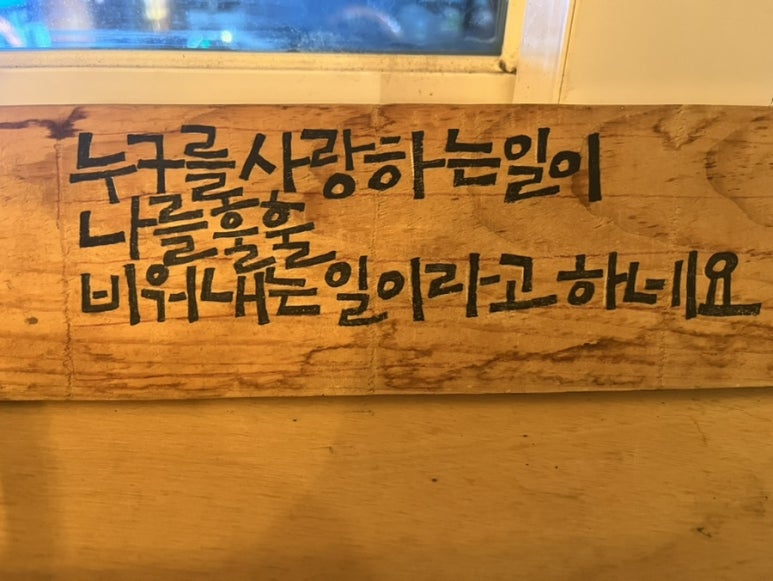 누구를 사랑하는 일이
나를 훌훌
비워내는 일이라고 하네요